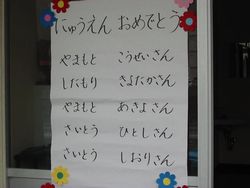 にゅうえん おめでとう
やまもと こうせいさん
したもり きよたかさん
やまもと あきよさん
さいとう ひとしさん
さいとう しおりさん